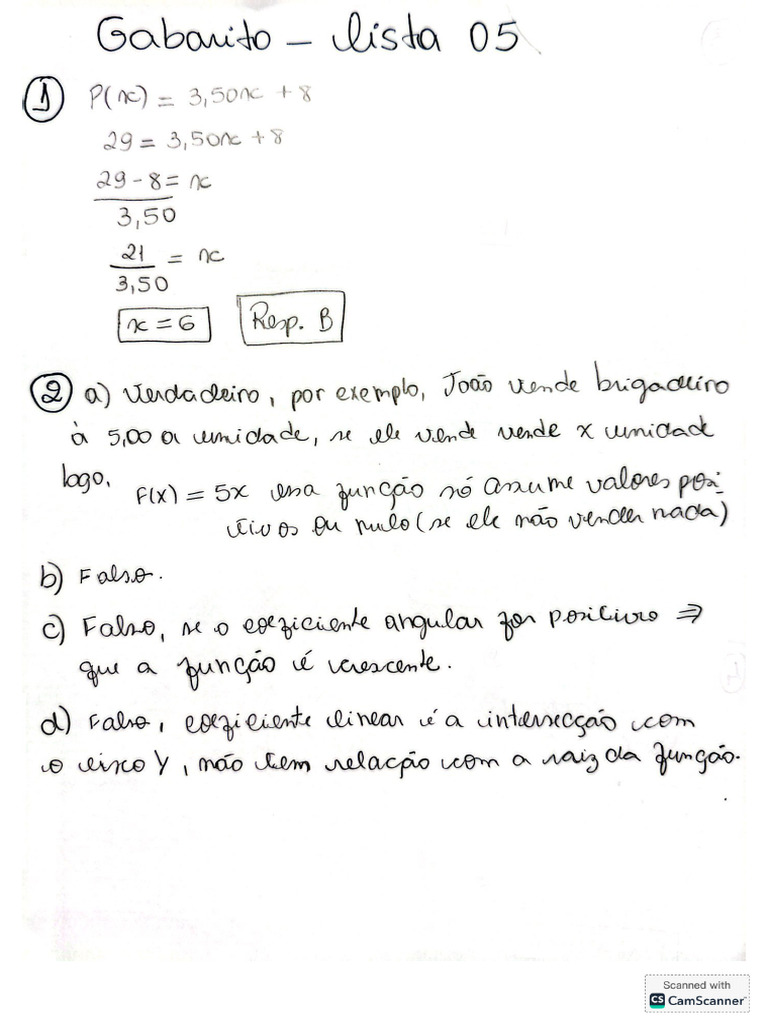 Gabarito - lista 05
1 P(x) = 3,50x + 8
29 = 3,50x + 8
29 - 8 = x
3,50
21 = x
3,50
x = 6 Resp. B
2 a) Verdadeiro, por exemplo, João vende brigadeiro
à 5,00 a unidade, se ele vende vende x unidade
logo, F(x) = 5x essa função só assume valores posi-
tivos ou nulo (se ele não vender nada)
b) Falso.
c) Falso, se o coeficiente angular for positivo ⇒
que a função é crescente.
d) Falso, coeficiente linear é a intersecção com
o eixo Y, não tem relação com a raiz da função.
Scanned with
CS CamScanner